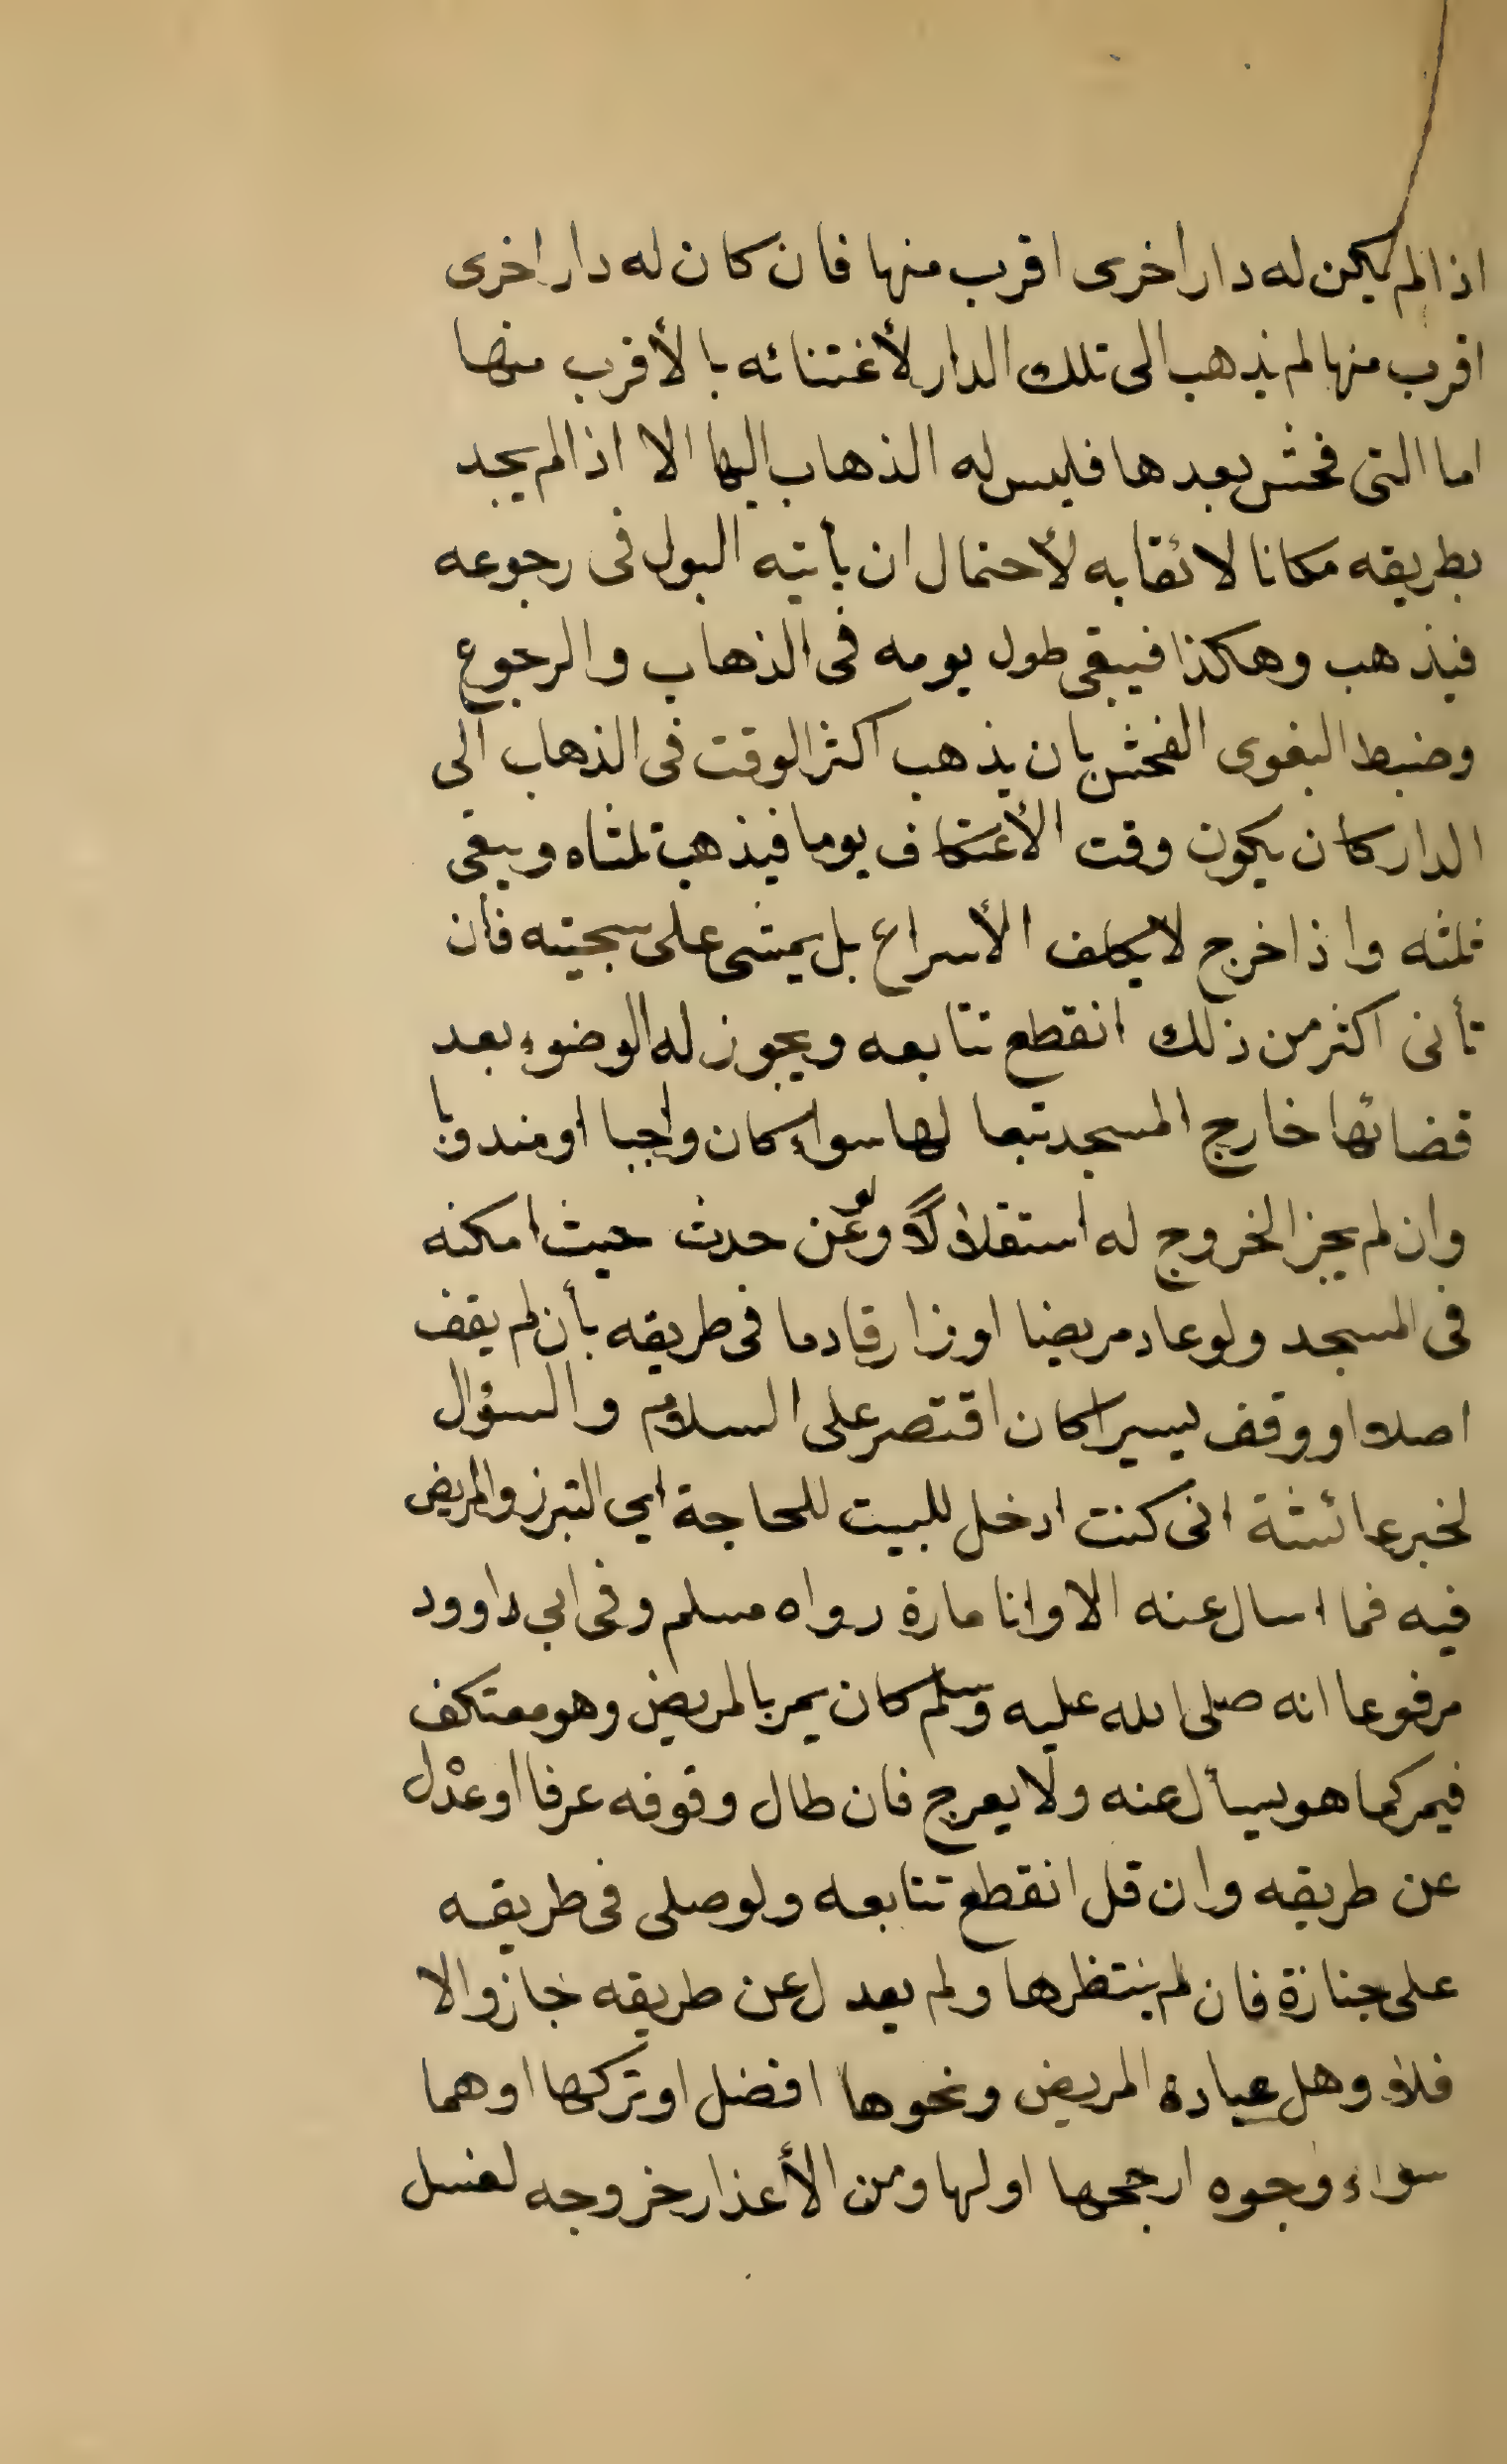 اذا لم يكن له دار اخرى اقرب منها فان كان له دار اخرى
اقرب منها لم يذهب الى تلك الدار لأغتنائه بالأقرب منها
اما التى فحش بعدها فليس له الذهاب اليها الا اذا لم يجد
بطريقه مكانا لائقا به لأحتمال ان يأتيه البول فى رجوعه
فيذهب وهكذا فيبقى طول يومه فى الذهاب والرجوع
وضبط البغوى الفحش بان يذهب اكثر الوقت فى الذهاب الى
الدار كأن يكون وقت الأعتكاف يوما فيذهب ثلثاه ويبقى
ثلثه واذا خرج لا يكلف الأسراع بل يمشى على سجيته فأن
تأنى اكثر من ذلك انقطع تتابعه ويجوز له الوضوء بعد
قضائها خارج المسجد تبعا لها سواء كان واجبا او مندوبا
وان لم يجز الخروج له استقلالاً ولو عن حدث حيث امكنه
فى المسجد ولو عاد مريضا او زار قادما فى طريقه بأن لم يقف
اصلا او وقف يسيرا كان اقتصر على السلام والسؤال
لخبر عائشة انى كنت ادخل للبيت للحاجة اي التبرز والمريض
فيه فما اسال عنه الا وانا مارة رواه مسلم وفى ابي داوود
مرفوعا انه صلى الله عليه وسلم كان يمر بالمريض وهو معتكف
فيمر كما هو يسأل عنه ولا يعرج فان طال وقوفه عرفا او عدل
عن طريقه وان قل انقطع تتابعه ولو صلى فى طريقه
على جنازة فان لم ينتظرها ولم يعدل عن طريقه جاز والا
فلا وهل عيادة المريض ونحوها افضل او تركها او هما
سواء وجوه ارجحها اولها ومن الأعذار خروجه لغسل